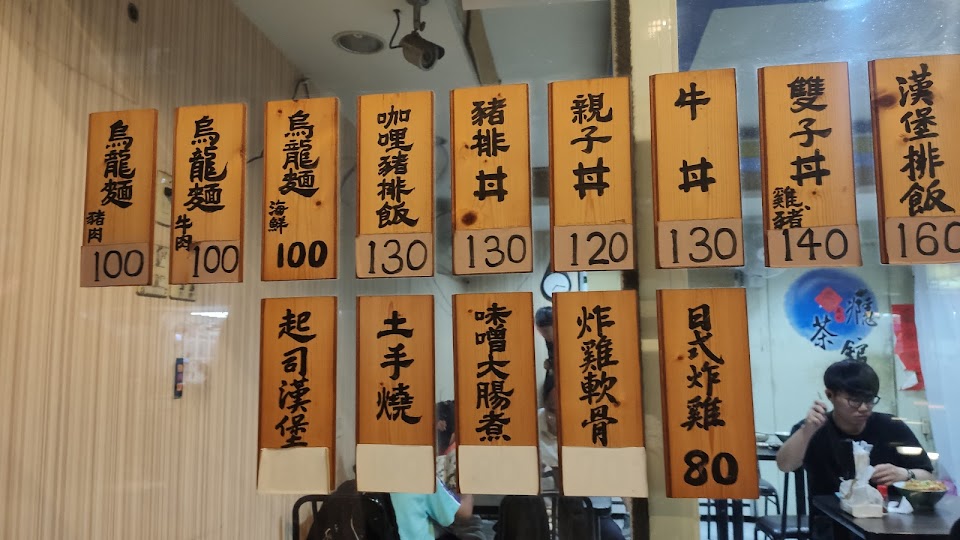 烏龍麵 豬肉 100
烏龍麵 牛肉 100
烏龍麵 海鮮 100
咖哩豬排飯 130
豬排丼 130
親子丼 120
牛丼 130
雙子丼 雞、豬 140
漢堡排飯 160
起司漢堡
土手燒
味噌大腸煮
炸雞軟骨
日式炸雞 80
癮
茶館